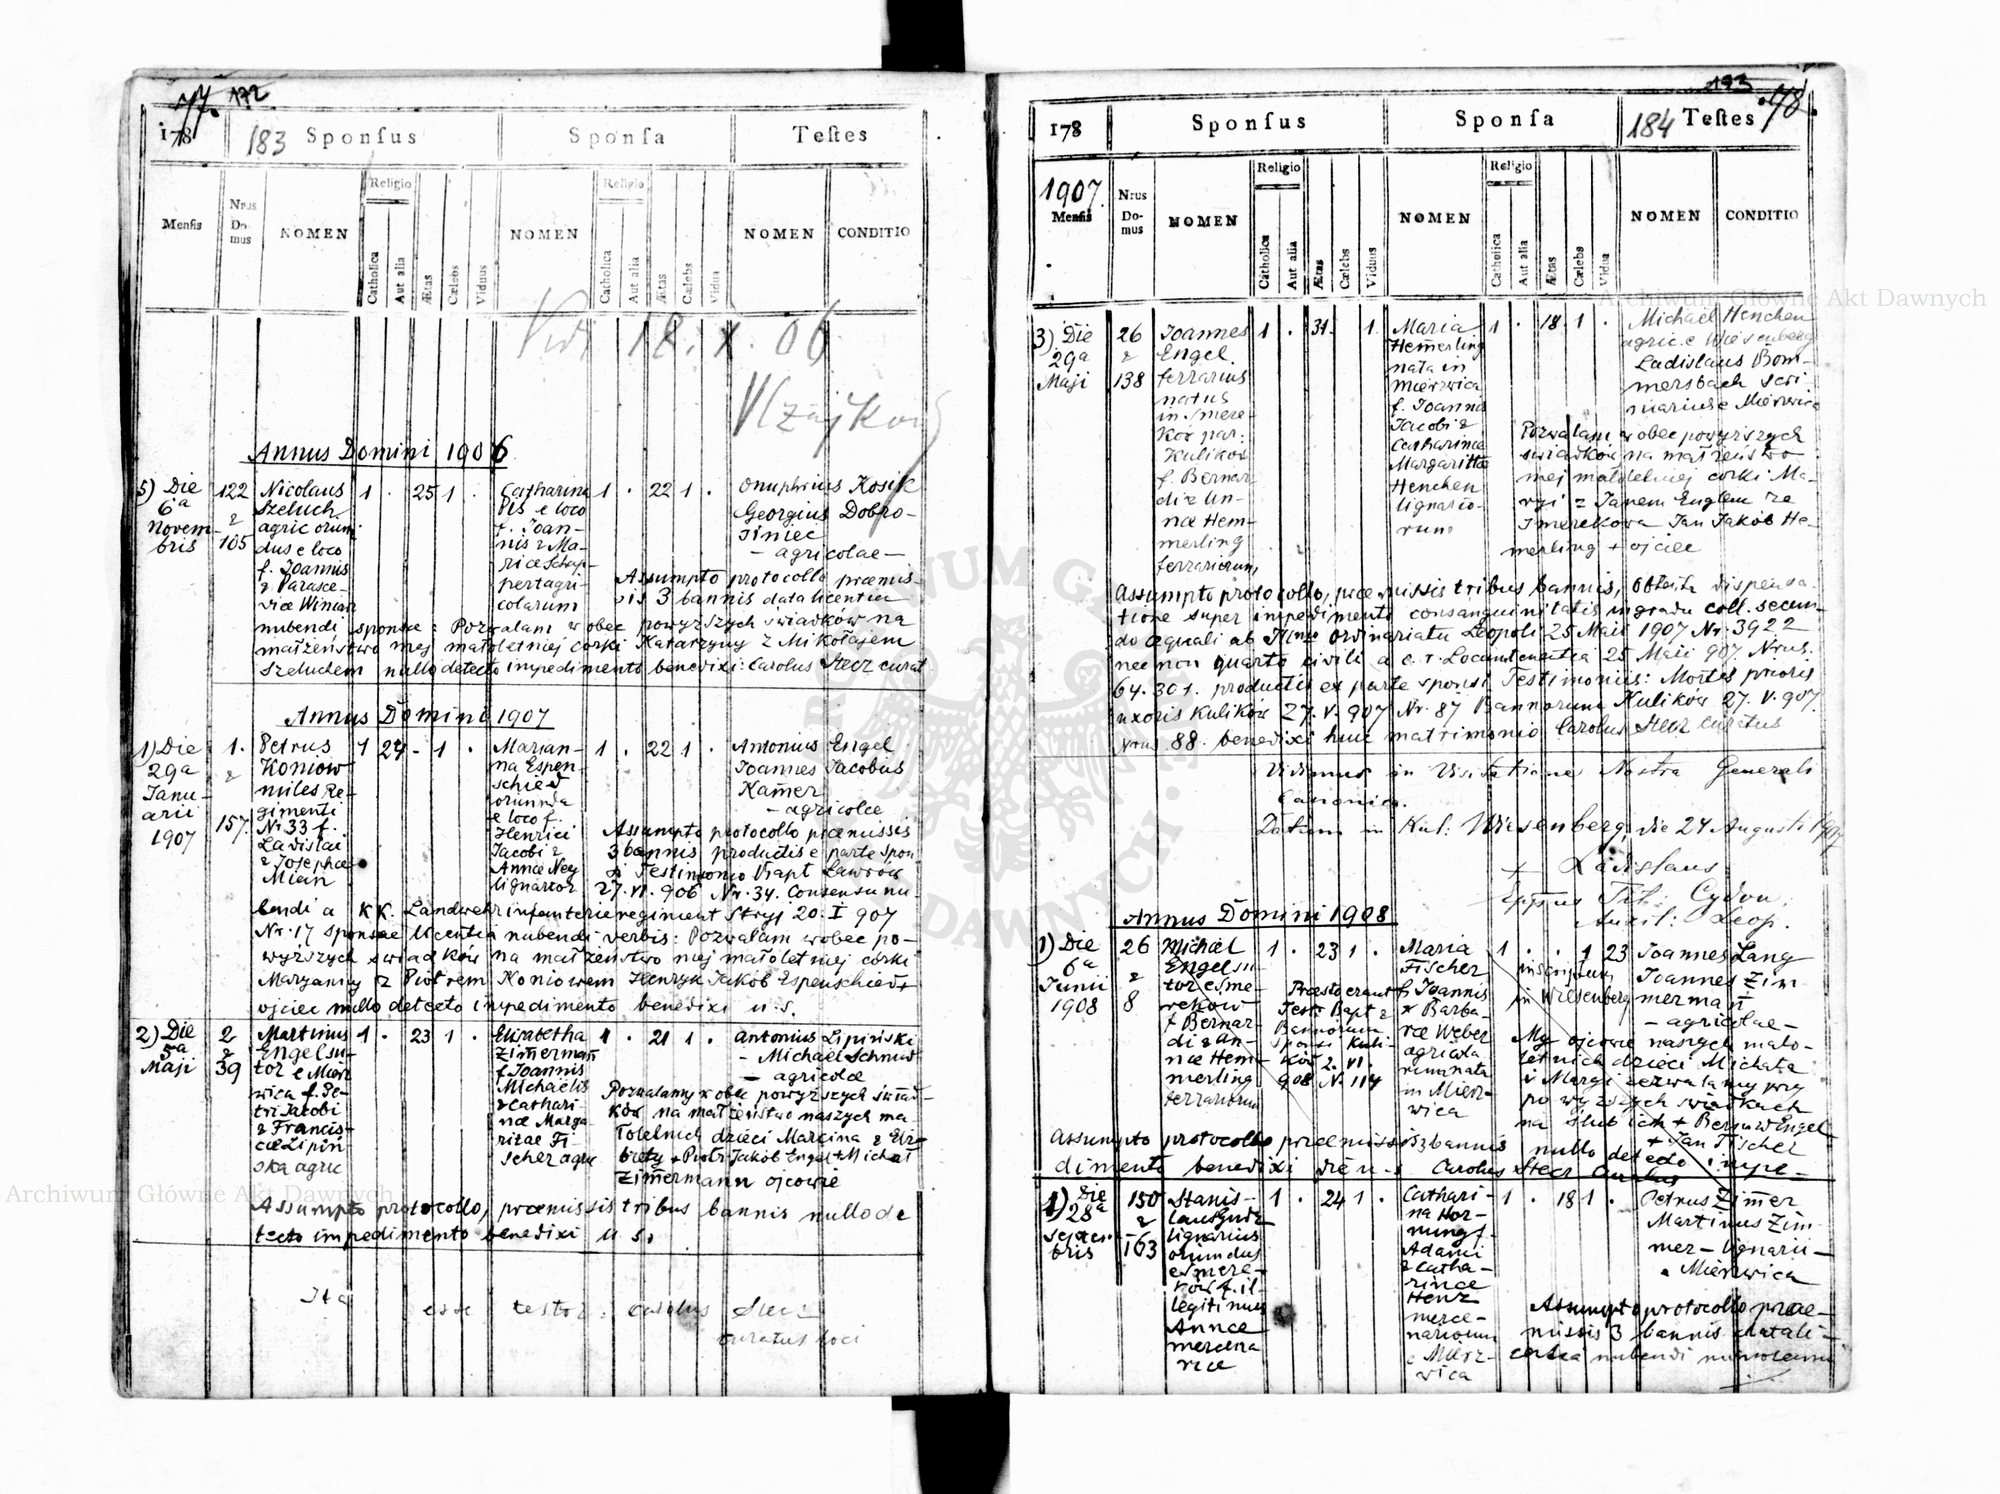 77. 172
178
183 Sponſus
Sponſa
Teſtes
Menſis
Nrus Do-mus
NOMEN
Religio
Catholica
Aut alia
Ætas
Cælebs
Viduus
NOMEN
Religio
Catholica
Aut alia
Ætas
Cælebs
Vidua
NOMEN
CONDITIO
18. X. 06
Annus Domini 1906
5) Die
6a
Novem-
bris
122
&
105
Nicolaus
Szeluch
agric oriun
dus e loco
f. Joannis
& Parasce-
viæ Winiar
1 . 25 1 .
Catharina
Pis e loco
f. Joan-
nis & Ma-
riæ Schap-
pert agri-
colarum
1 . 22 1 .
Onuphrius Kosik
Georgius Dobro-
siniec
- agricolae -
Assumpto protocollo præmis-
sis 3 bannis data licentia
nubendi sponsæ: Pozwalam wobec powyższych świadków na
małżeństwo mej małoletniej córki Katarzyny z Mikołajem
Szeluchem nullo detecto impedimento benedixi: Carolus Stecz curat
Annus Domini 1907
1) Die
29a
Janu-
arii
1907
1.
&
157.
Petrus
Koniow
miles Re-
gimenti
Nr 33 f.
Ladislai
& Josephæ
Mian
1 24 - 1 .
Marian-
na Espen-
schied
oriunda
e loco f.
Henrici
Jacobi &
Annæ Ney
lignarior
1 . 22 1 .
Antonius Engel
Joannes Jacobus
Kam̄er
- agricolæ
Assumpto protocollo præmissis
3 bannis productis e parte spon
si Testimonio Bapt Ławrów
27. VI. 906 Nr. 34. Consensu nu-
bendi a KK. Landwehrinfanterieregiment Stryj 20. I 907
Nr. 17 sponsae licentia nubendi verbis: Pozwalam wobec po-
wyższych świadków na małżeństwo mej małoletniej córki
Maryanny z Piotrem Koniowem Henryk Jakób Espenschied +
ojciec nullo detecto impedimento benedixi u. s.
2) Die
5a
Maji
2
&
39
Martinus
Engel su-
tor e Mierz
wica f. Pe-
tri Jacobi
& Francis-
cæ Lipiń
ska agric
1 . 23 1 .
Elisabetha
Zim̄erman̄
f. Joannis
Michaelis
& Cathari-
næ Marga
ritae Fi-
scher agric
1 . 21 1 .
Antonius Lipiński
- Michaël Schmidt
- agricolæ
Pozwalamy wobec powyższych świad-
ków na małżeństwo naszych ma
łoletnich dzieci Marcina & Elż-
biety + Piotr Jakób Engel + Michał
Zim̄ermann ojcowie
Assumpto protocollo, præmissis tribus bannis nullo de
tecto impedimento benedixi u s.
Ita esse testor: Carolus Stecz
curatus loci
193 78.
178
Sponſus
Sponſa
184 Teſtes
1907.
Menſis
Nrus Do-mus
NOMEN
Religio
Catholica
Aut alia
Ætas
Cælebs
Viduus
NOMEN
Religio
Catholica
Aut alia
Ætas
Cælebs
Vidua
NOMEN
CONDITIO
3) Die
29a
Maji
26
&
138
Joannes
Engel
ferrarius
natus
in Smere-
ków par:
Kulików
f. Bernar
di & An-
næ Hem-
merling
ferrariorum
1 . 31. 1.
Maria
Hem̄erling
nata in
Mierzwica
f. Joannis
Jacobi &
Catharinæ
Margarittæ
Henchen
lignario-
rum
1 . 18. 1 .
Michaël Henchen
agric. e Wiesenberg
Ladislaus Bom-
mersbach scri
niarius e Mierzwica
Pozwalam wobec powyższych
świadków na małżeństwo
mej małoletniej córki Ma-
ryi z Janem Englem ze
Smerekowa Jan Jakób He-
merling + ojciec
Assumpto protocollo, præmissis tribus bannis, obtenta dispensa-
tione super impedimento consanguinitatis in gradu coll. secun-
do æquali ab Illmo Ordinariatu Leopoli 25 Maii 1907 Nr. 3922
nec non quarto civili a c. r. Locumtenentia 25 Maii 907 Nrus.
64.301. productis ex parte sponsi Testimoniis: Mortis prioris
uxoris Kulików 27. V. 907 Nr. 87 Bannorum Kulików 27. V. 907
Nrus 88. benedixi huic matrimonio Carolus Stecz curatus
Vidimus in Visitatione Nostra Generali
Canonica.
Datum in Wiesenberg, die 24 Augusti 1907
+ Ladislaus
Eppus Tit: Cydon.
Auxil: Leop.
Annus Domini 1908
1) Die
6a
Junii
1908
26
&
8
Michael
Engel su-
tor e Sme-
rekow
f Bernar-
di & An-
næ Hem-
merling
ferrariorum
1 . 23 1 .
Præsto erant
Test. Bapt &
Bannorum
sponsi Kuli-
ków 2. VI.
908 N. 114
Maria
Fischer
f. Joannis
& Barba-
ræ Weber
agricola
rum nata
in Mierz-
wica
1 . . 1 23
inscriptum
in Wiesenberg
Joannes Lang
Joannes Zim-
merman̄
- agricolae -
My ojcowie naszych mało-
letnich dzieci Michała
i Maryi zezwalamy przy
powyższych świadkach
na ślub ich + Bernard Engel
+ Jan Fischer
Assumpto protocollo præmissis 3 bannis nullo detecto impe-
dimento benedixi die u. s Carolus Stecz Curatus
2) Die
28a
Septem-
bris
150
&
163
Stanis-
laus
lignarius
oriundus
e Smere-
ków f. il-
legitimus
Annæ
mercena
riæ
1 . 24 1 .
Cathari-
na Hor-
nung f.
Adami
& Catha-
rinæ
Henz
merce-
nariorum
e Mierz-
wica
1 . 18 1 .
Petrus Zim̄er
Martinus Zim-
mer - lignarii -
e Mierzwica
Assumpto protocollo præ-
missis 3 bannis data li-
centia nubendi minorenni
Archiwum Główne Akt Dawnych
Archiwum Główne Akt Dawnych
ARCHIWUM GŁÓWNE AKT DAWNYCH